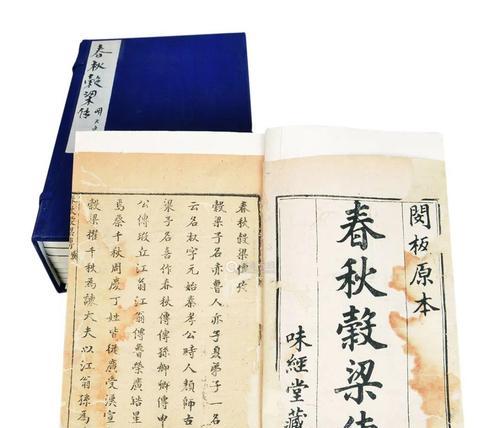 春秋穀梁传
閔板原本
春秋穀梁傳
味經堂藏
春秋穀梁傳攷
穀梁子名赤魯人亦子夏弟子一名
云名俶字元始秦孝公時人顏師古
梁子名喜作春秋傳傳孫卿卿傳申
公傳瑕立江翁江翁傳魯榮廣皓星
焉蔡千秋周慶丁姓皆從廣受漢宣
穀梁擢千秋為諫大夫以江翁孫為